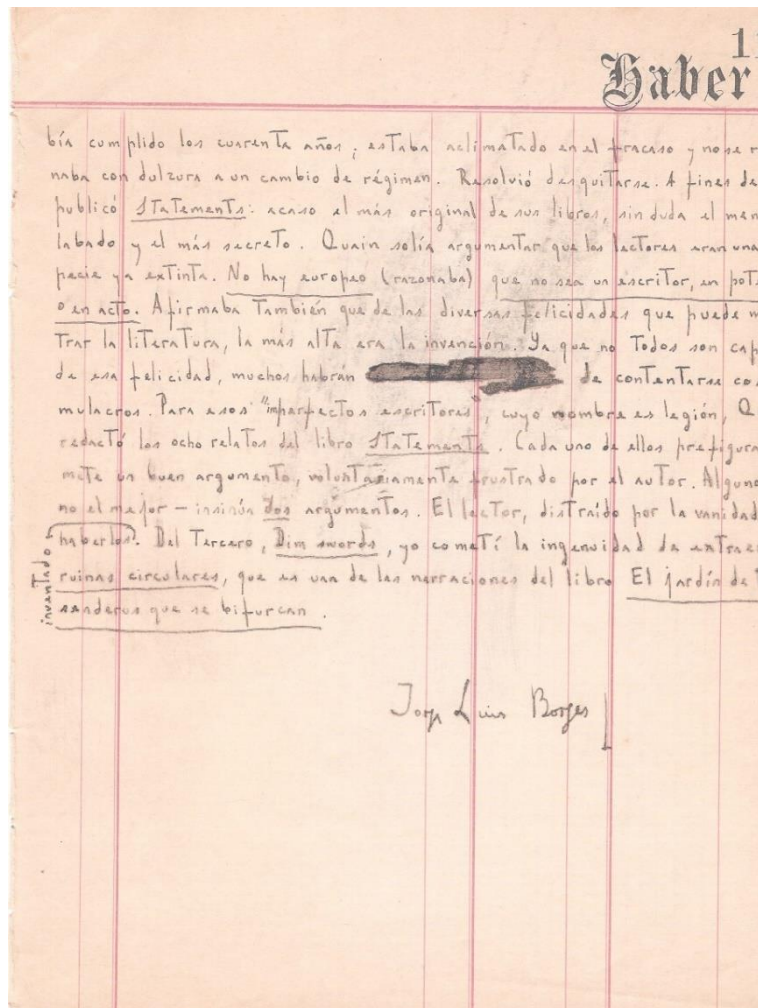 11
Haber
bía cumplido los cuarenta años; estaba aclimatado en el fracaso y no se r
naba con dulzura a un cambio de régimen. Resolvió desquitarse. A fines de
publicó Statements: acaso el más original de sus libros, sin duda el men
labado y el más secreto. Quain solía argumentar que los lectores eran una
pecie ya extinta. No hay europeo (razonaba) que no sea un escritor, en pot
o en acto. Afirmaba también que de las diversas felicidades que puede m
trar la literatura, la más alta era la invención. Ya que no todos son cap
de esa felicidad, muchos habrán de contentarse co
mulacros. Para esos "imperfectos escritores", cuyo nombre es legión, Q
redactó los ocho relatos del libro Statements. Cada uno de ellos prefigura
mete un buen argumento, voluntariamente frustrado por el autor. Alguno
no el mejor — insinúa dos argumentos. El lector, distraído por la vanidad
haberlos. Del tercero, Dim swords, yo cometí la ingenuidad de extrae
ruinas circulares, que es una de las narraciones del libro El jardín de
senderos que se bifurcan.
inventado
Jorge Luis Borges